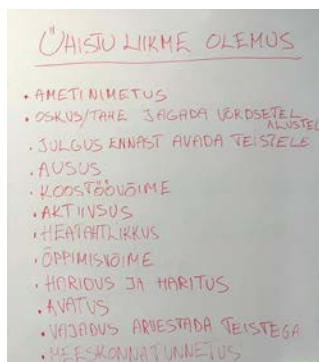 ÜHISTU LIIKME OLEMUS
• AMETINIMETUS
• OSKUS/TAHE JAGADA VÕRDSETEL
ALUSTEL
• JULGUS ENNAST AVADA TEISTELE
• AUSUS
• KOOSTÖÖVÕIME
• AKTIIVSUS
• HEATAHTLIKKUS
• ÕPPIMISVÕIME
• HARIDUS JA HARITUS
• AVATUS
• VAJADUS ARVESTADA TEISTEGA
• MEESKONNATUNNETUS